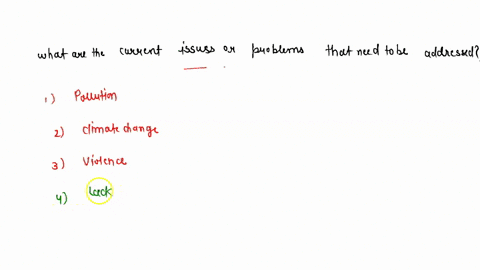 what are the current issues or problems that need to be addressed?
1) Pollution
2) climate change
3) Violence
4) Lack